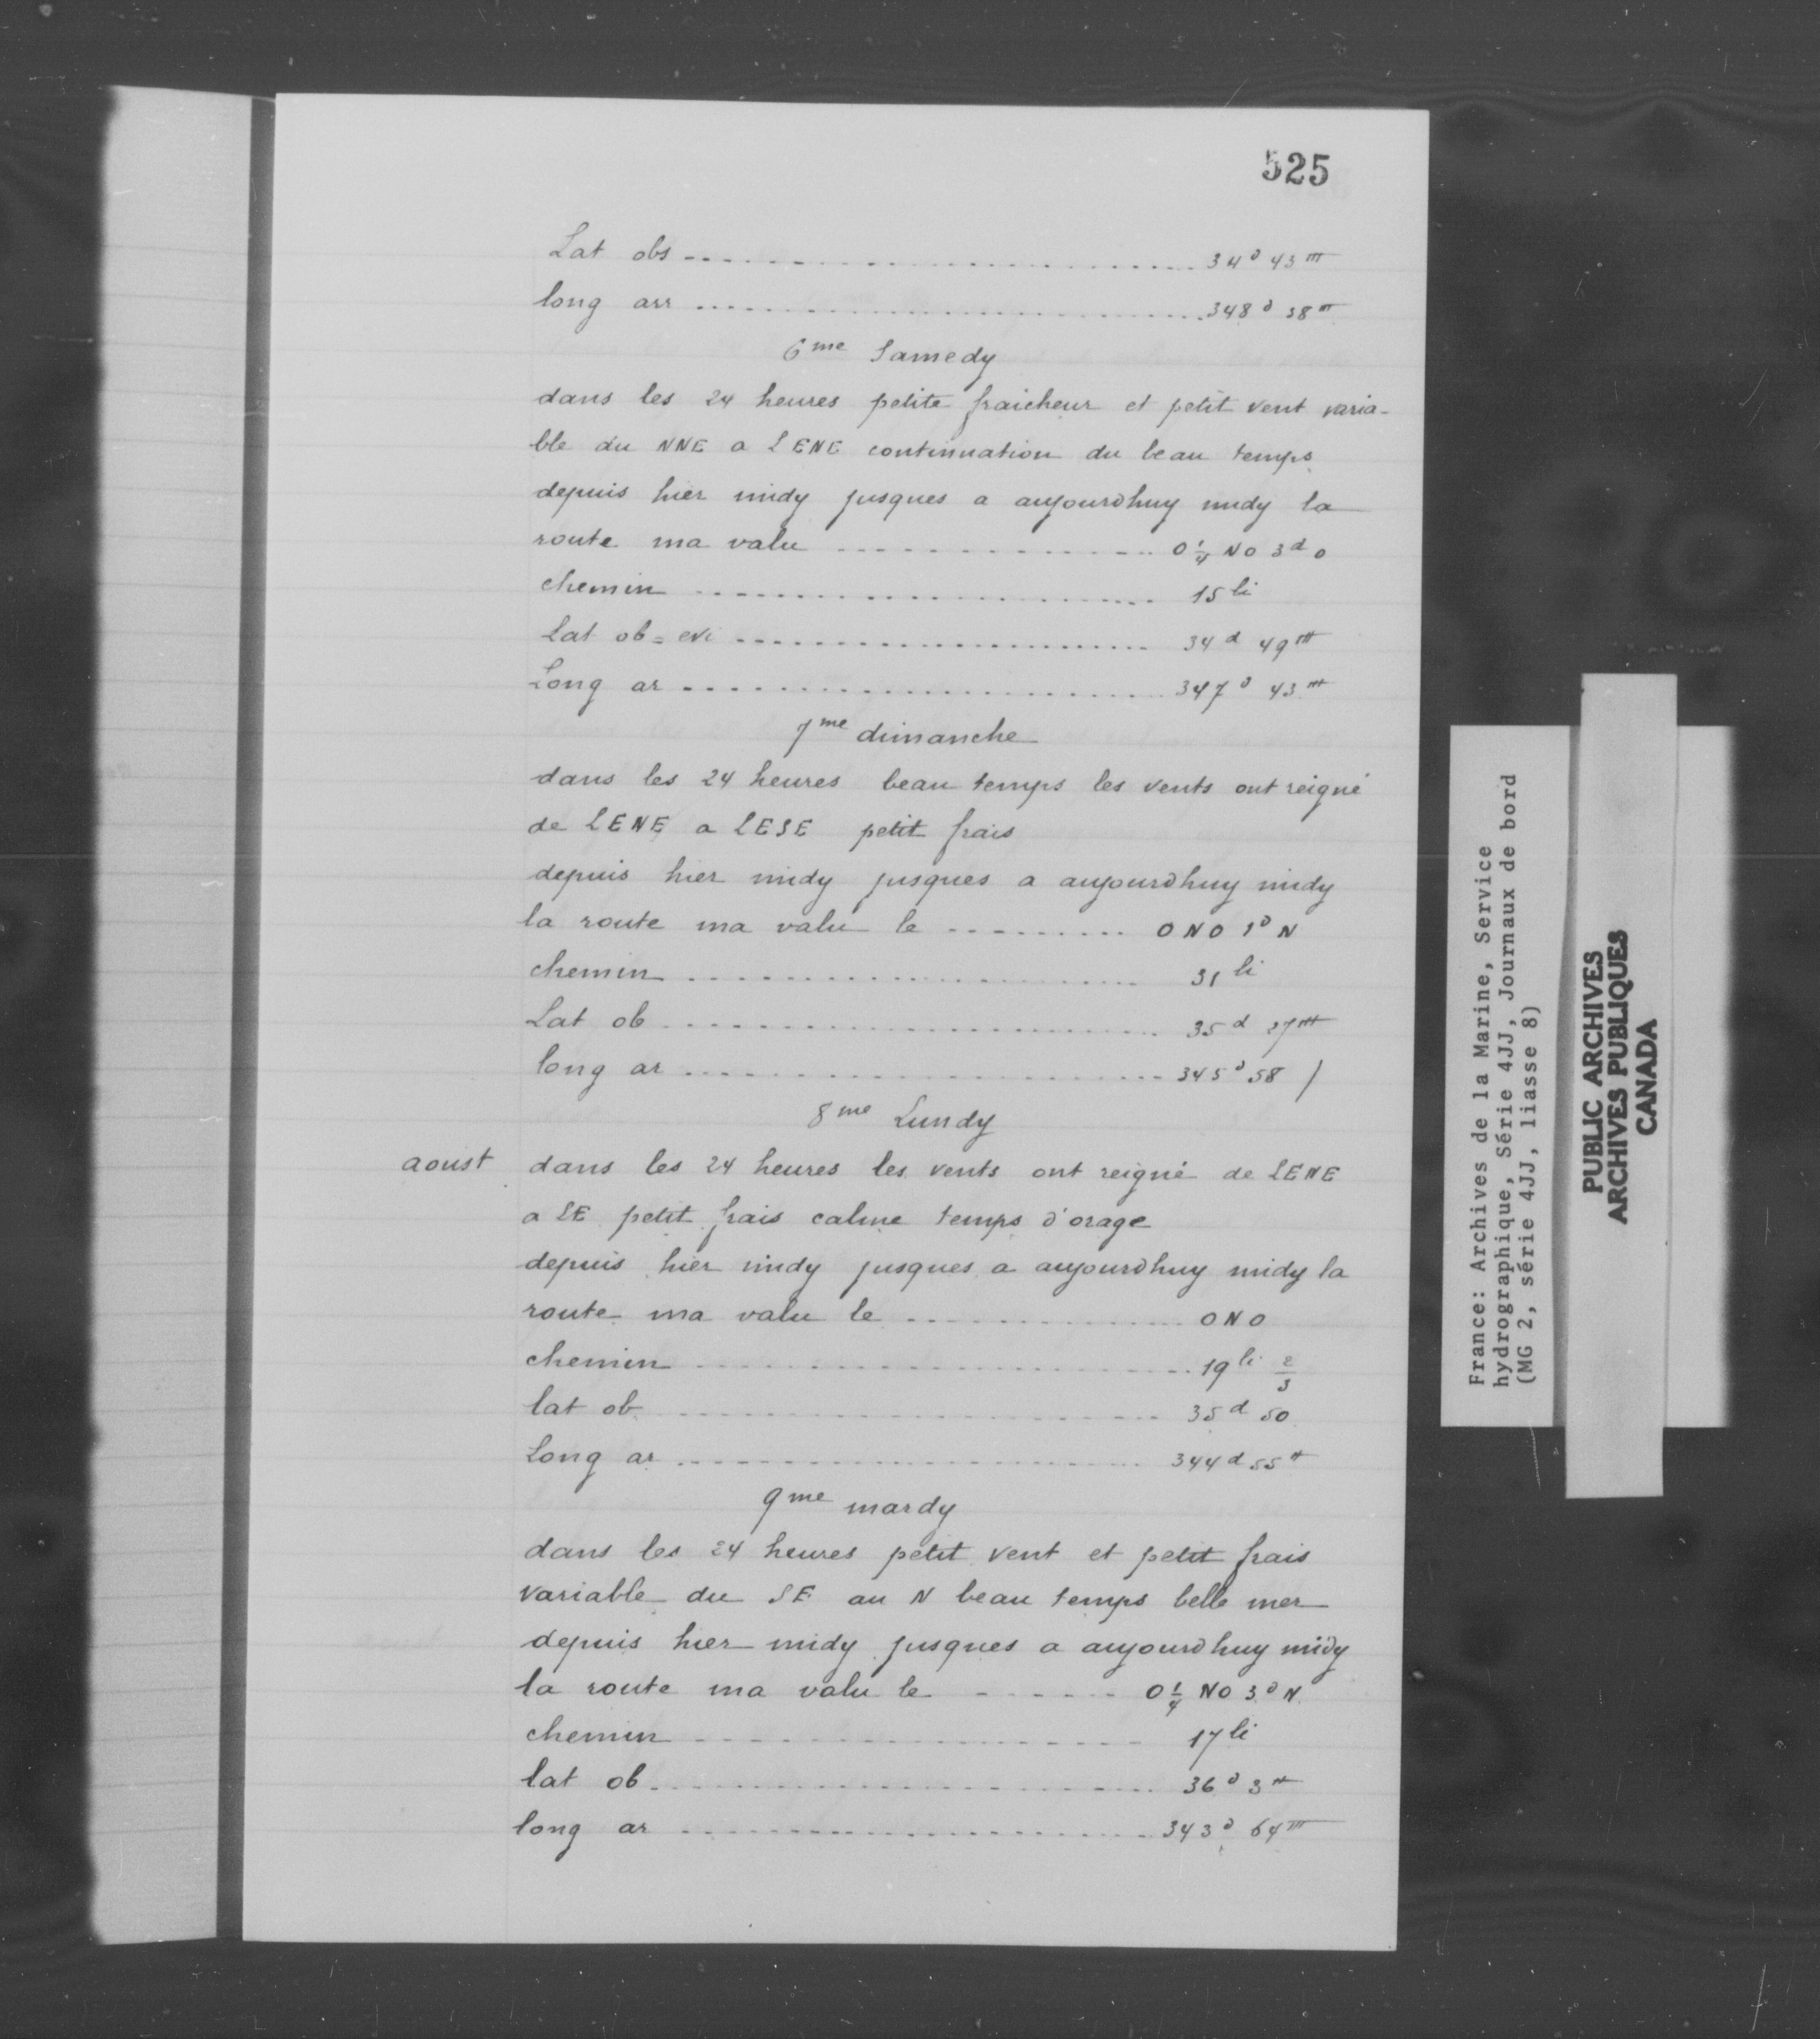 525
Lat obs ........................ 34d 43m
long arr ........................ 348d 38m
6me Samedy
dans les 24 heures petite fraicheur et petit vent varia-
ble du NNE a LENE continuation du beau temps
depuis hier midy jusques a aujourdhuy midy la
route ma valu ........................ O 1/4 NO 3d O
chemin ........................ 15 li
Lat ob = evi ........................ 34d 49m
Long ar ........................ 347d 43m
7me dimanche
dans les 24 heures beau temps les vents ont reigné
de LENE a LESE petit frais
depuis hier midy jusques a aujourdhuy midy
la route ma valu le ........................ ONO 1d N
chemin ........................ 31 li
Lat ob ........................ 35d 27m
long ar ........................ 345d 58 /
8me Lundy
aoust dans les 24 heures les vents ont reigné de LENE
a SE petit frais calme temps d'orage
depuis hier midy jusques a aujourdhuy midy la
route ma valu le ........................ ONO
chemin ........................ 19 li 2/3
lat ob ........................ 35d 50
Long ar ........................ 344d 55m
9me mardy
dans les 24 heures petit vent et petit frais
variable du SE au N beau temps belle mer
depuis hier midy jusques a aujourdhuy midy
la route ma valu le ........................ O 1/4 NO 3d N
chemin ........................ 17 li
lat ob ........................ 36d 3m
long ar ........................ 343d 64m
France: Archives de la Marine, Service
hydrographique, Série 4JJ, Journaux de bord
(MG 2, série 4JJ, liasse 8)
PUBLIC ARCHIVES
ARCHIVES PUBLIQUES
CANADA